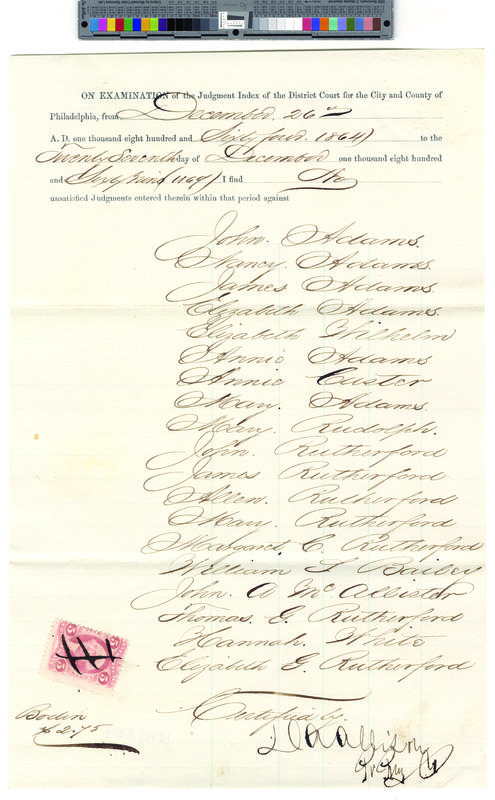 ON EXAMINATION of the Judgment Index of the District Court for the City and County of
Philadelphia, from December 26th
A. D. one thousand eight hundred and Sixty four (1864) to the
Twenty Seventh day of December one thousand eight hundred
and Sixty Nine (1869) I find No
unsatisfied Judgments entered therein within that period against
John Adams.
Nancy Adams.
James Adams
Elizabeth Adams.
Elizabeth Wilhelm
Annie Adams
Annie Custer
Mary Adams.
Mary Rudolph.
John Rutherford
James Rutherford
Allen Rutherford
Mary Rutherford
Margaret C. Rutherford
William S Bailey
John A McAllister
Thomas G. Rutherford
Hannah White
Elizabeth G. Rutherford
5 5
Certifia by.
Bodin
$2.75